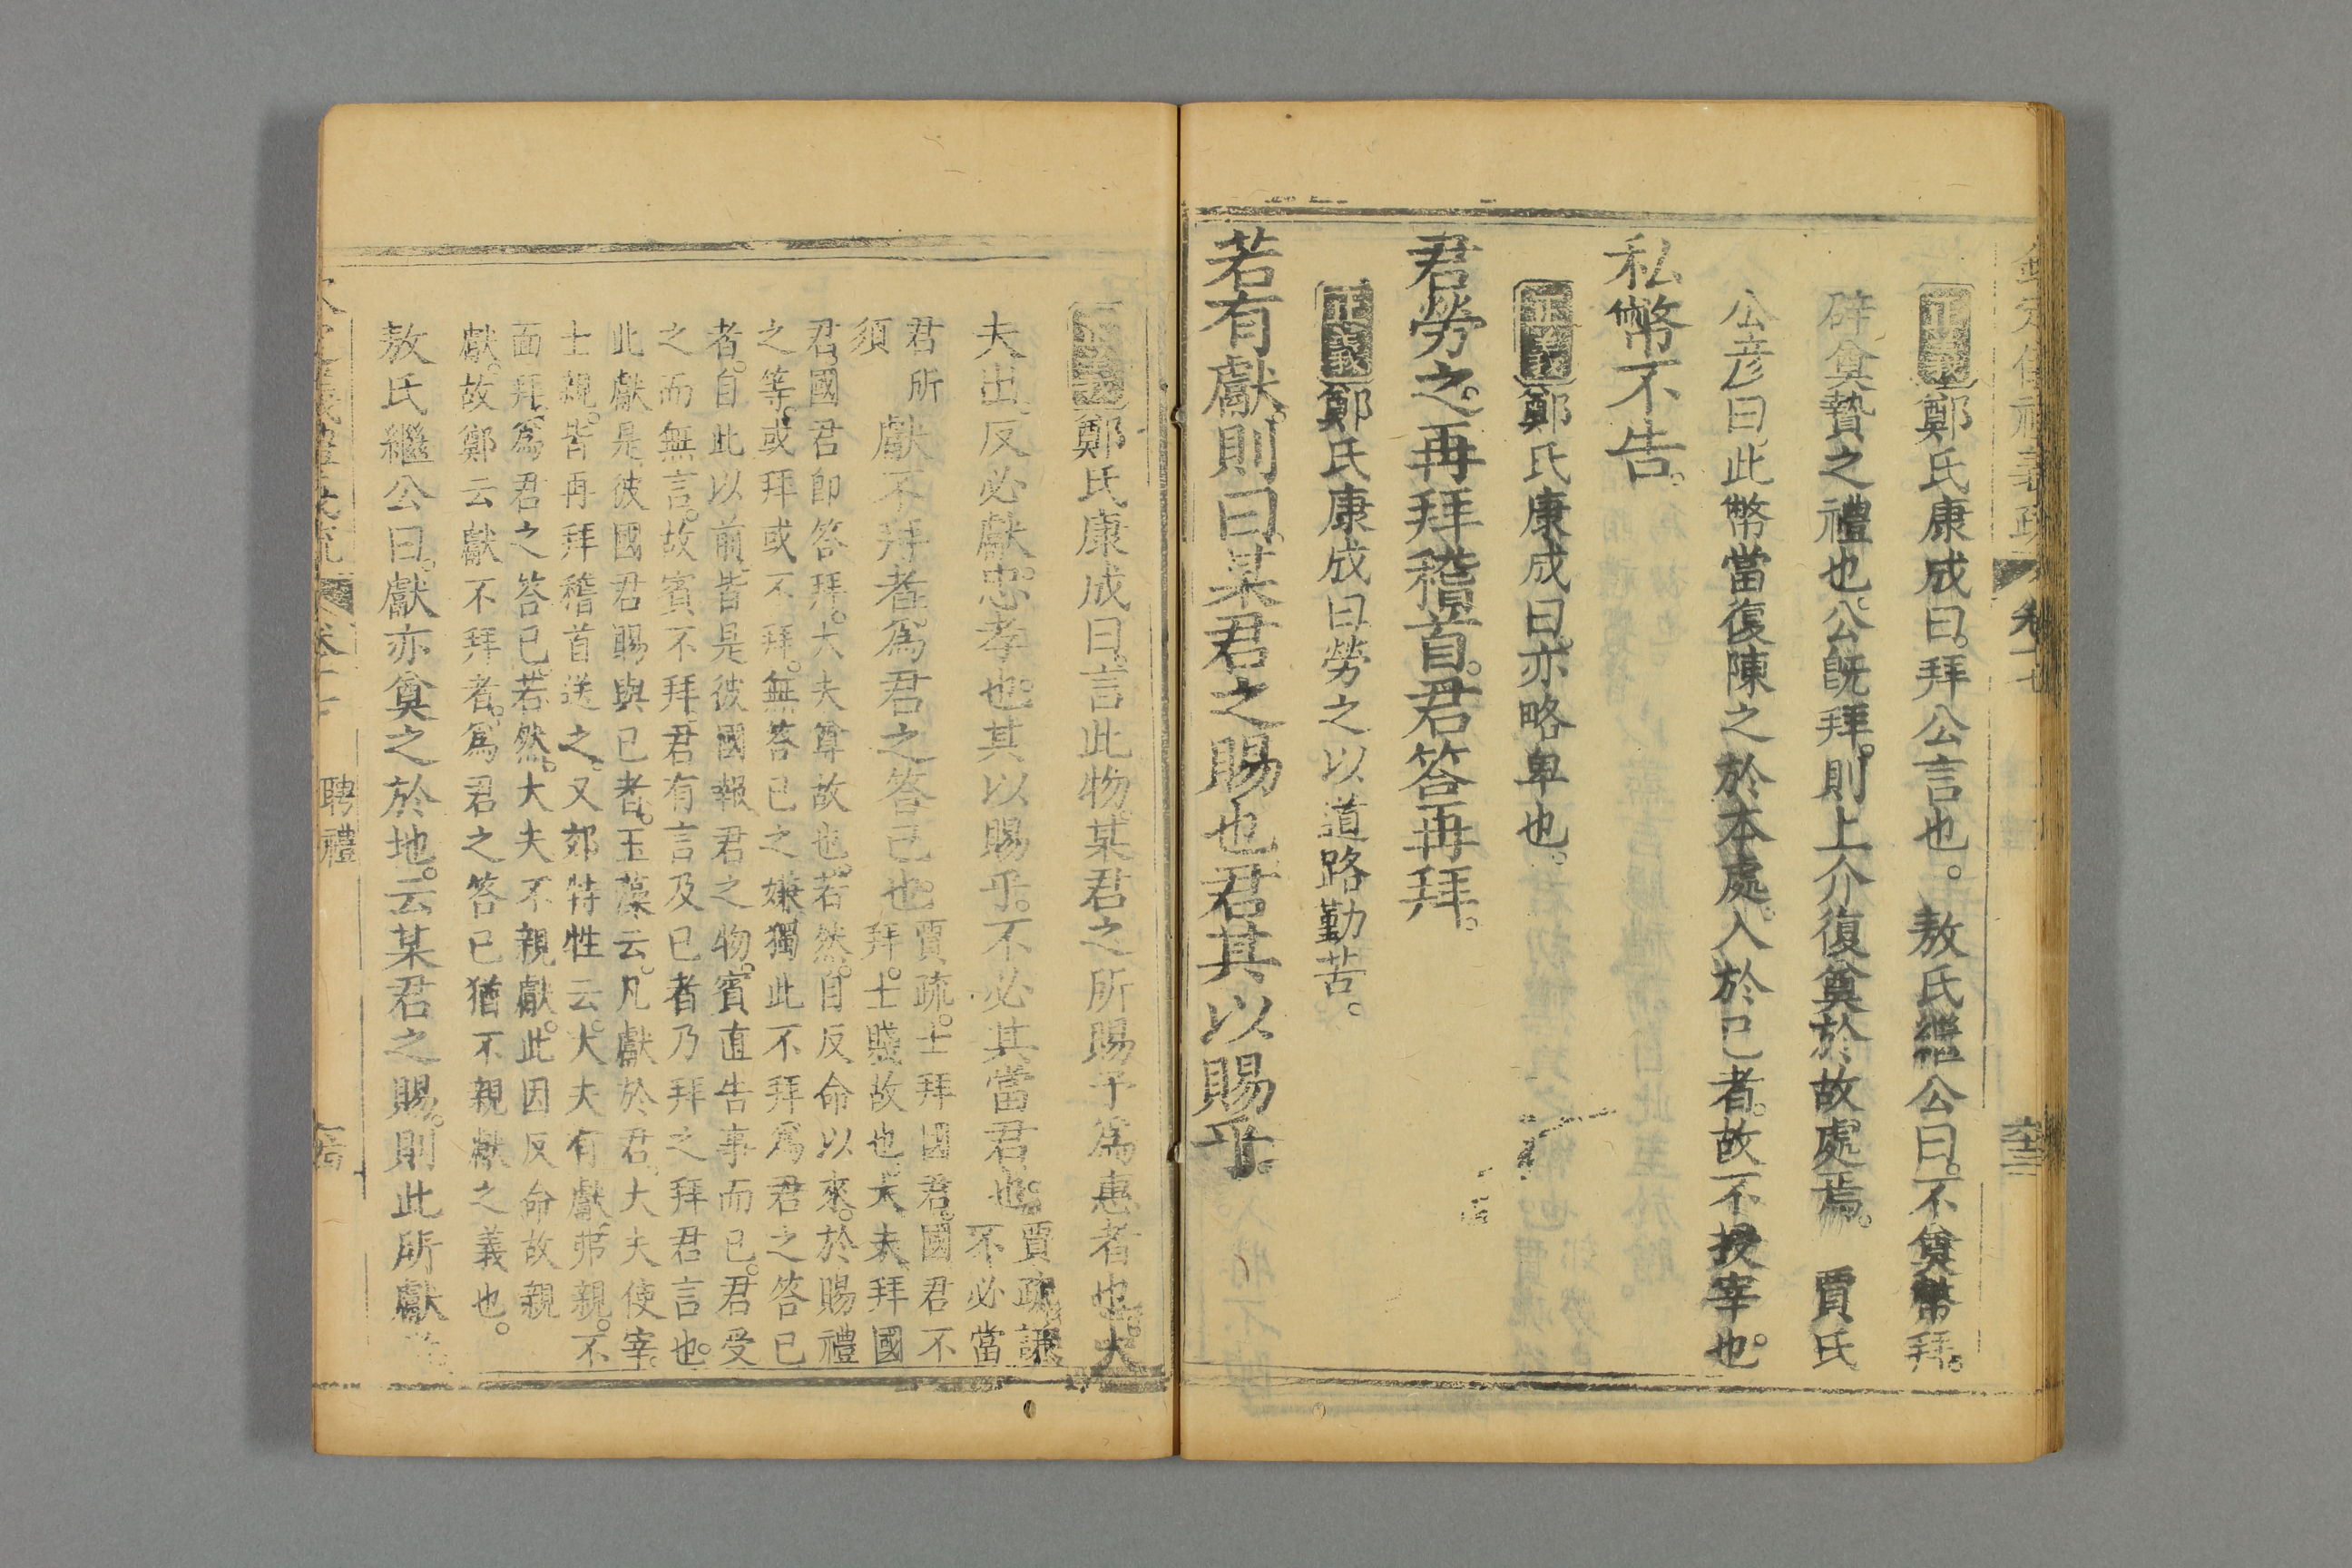 正義鄭氏康成曰。拜公言也。 敖氏繼公曰。不奠幣拜。
辟奠贄之禮也。公既拜。則上介復奠於故處焉。 賈氏
公彦曰。此幣當復陳之於本處。入於己者。故不授宰也。
私幣不告。
正義鄭氏康成曰。亦略卑也。
君勞之。再拜稽首。君答再拜。
正義鄭氏康成曰勞之以道路勤苦。
若有獻。則曰。某君之賜也君其以賜乎。
正義鄭氏康成曰。言此物。某君之所賜予爲惠者也。大
夫出反必獻。忠孝也。其以賜乎。不必其當君也。賈疏謙
不必當
君所
須
獻不拜者。爲君之答己也。賈疏。士拜國君。國君不
拜。士賤故也。大夫拜國
君。國君卽答拜。大夫尊故也。若然。自反命以來。於賜禮
之等。或拜或不拜。無答己之嫌。獨此不拜爲君之答己
者。自此以前。皆是彼國報君之物。賓直告事而已。君受
之而無言。故賓不拜。君有言及己者乃拜之拜君言也。
此獻是彼國君賜與己者。玉藻云。凡獻於君。大夫使宰。
士親。皆再拜稽首送之。又郊特牲云。大夫有獻弗親。不
面拜。爲君之答己。若然。大夫不親獻。此因反命故親
獻。故鄭云獻不拜者。爲君之答己猶不親獻之義也。
敖氏繼公曰。獻亦奠之於地。云某君之賜。則此所獻
聘禮